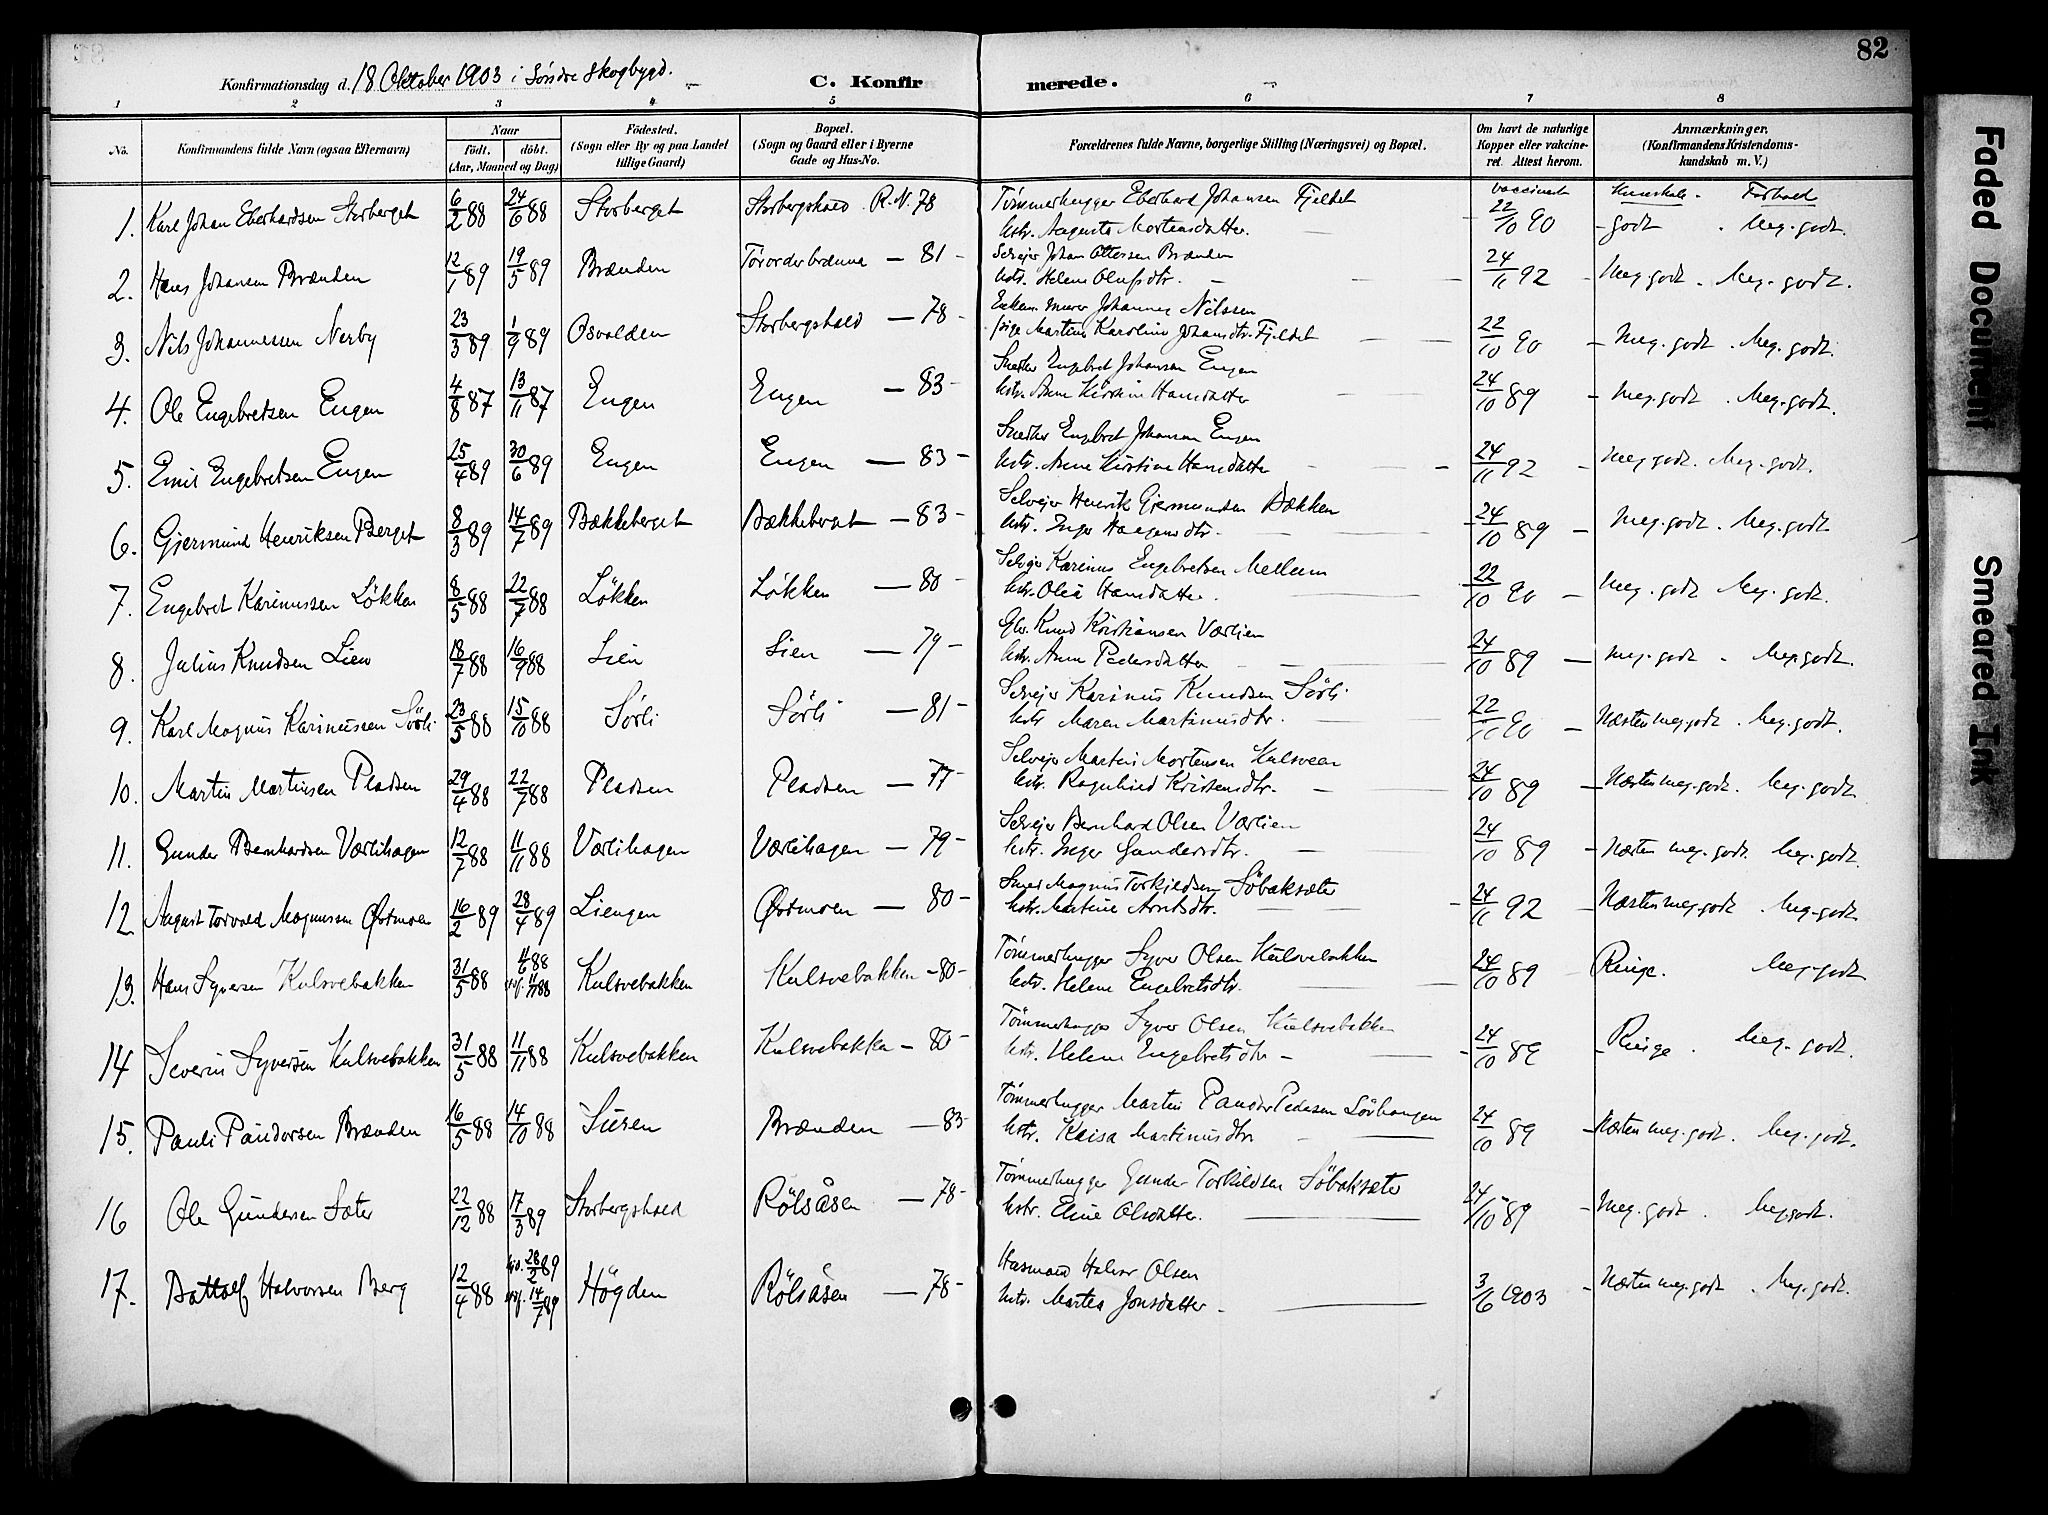 82
Konfirmationsdag d. 18 Oktober 1903 i Söndre Skogbygd. C. Konfirmerede.
1 2 3 4 5 6 7 8
No. Konfirmandens fulde Navn (ogsaa Efternavn) Naar födt. döbt. (Aar, Maaned og Dag) Födested. (Sogn eller By og paa Landet tillige Gaard) Bopæl. (Sogn og Gaard eller i Byerne Gade og Hus-No. Forældrenes fulde Navne, borgerlige Stilling (Næringsvei) og Bopæl. Om havt de naturlige Kopper eller vakcineret. Attest herom. Anmærkninger. (Konfirmandens Kristendomskundskab m. V.)
vaccineret Kunskab. Forhold
1. Karl Johan Eberhardsen Storberget 6/2 88 24/6 88 Storberget Storbergshold R.N. 78 Tömmerhugger Eberhard Johansen Fjeldet
hstr. Augusta Mortensdatter. 22/10 90 - godt . Meg. godt.
2. Hans Johansen Brænden 12/1 89 19/5 89 Brænden — 81 - Selvejer Johan Ottersen Brænden
hstr. Helene Olufsdtr. 24/11 92 - Meg. godt . Meg. godt.
3. Nils Johannessen Nerby 23/3 89 1/9 89 Osvolden Storbergshold — 78 - Enkem. Murer Johannes Nilssen
pige Martine Karoline Johansdtr. Fjeldet 22/10 90 - Meg. godt . Meg. godt.
4. Ole Engebretsen Engen 4/8 87 13/11 87 Engen Engen — 83 - Snedker Engebret Johansen Engen
hstr. Anne Kirstine Hansdatter 24/10 89 - Meg. godt . Meg. godt.
5. Emil Engebretsen Engen 25/4 89 30/6 89 Engen Engen — 83 - Snedker Engebret Johansen Engen
hstr. Anne Kirstine Hansdatter 24/11 92 - Meg godt. Meg. godt.
6. Gjermund Henriksen Berget 8/3 89 14/7 89 Bækkeberget Bækkeberget — 83 - Selvejer Henrik Gjermundsen Bækken
hstr. Inger Haagensdtr. 24/10 89 - Meg. godt . Meg. godt.
7. Engebret Karinussen Løkken 8/5 88 22/7 88 Løkken Løkken — 80 - Selvejer Karinus Engebretsen Mellum
hstr. Olia Hansdatter. 22/10 90 - Meg. godt Meg. godt.
8. Julius Knudsen Lien 18/7 88 16/9 88 Lien Lien — 79 - Knud Kristiansen Værlien
hstr. Anne Pedersdatter 24/10 89 — Meg. godt . Meg. godt.
9. Karl Magnus Karinussen Sörli 23/5 88 15/10 88 Sörli Sörli — 81 - Selvejer Karinus Knudsen Sörli
hstr. Maren Martinusdtr. 22/10 90 - Næsten meg. godt . Meg. godt.
10. Martin Martinsen Pladsen 29/4 88 22/7 88 Pladsen Pladsen — 77 - Selvejer Martin Mortensen Kulsveen
hstr. Ragnhild Kristensdtr. 24/10 89 - Næsten meg. godt. Meg. godt
11. Gunder Bernhardsen Værlihagen 12/7 88 11/11 88 Værlihagen Værlihagen — 79 - Selvejer Bernhard Olsen Værlien
hstr. Inger Gundersdtr. 24/10 89 - Næsten meg. godt. Meg. godt.
12. August Torvald Magnussen Østmoen 16/2 89 28/4 89 Liengen Østmoen — 80 - Smed Magnus Torkildsen Söbaksæter
hstr. Martine Arntsdtr. 24/11 92 - Næsten meg. godt . Meg. godt.
13. Hans Syversen Kulsvebakken 31/5 88 4/6 88 Kulsvebakken Kulsvebakken - 80 - Tömmerhugger Syver Olsen Kulsvebakken
hstr. Helene Engebretsdtr. 24/10 89 - Ringe. Meg. godt
14 Severin Syversen Kulsvebakken 31/5 88 11/11 88 Kulsvebakken Kulsvebakken - 80 - Tömmerhugger Syver Olsen Kulsvebakken
hstr. Helene Engebretsdtr. - 24/10 89 - Ringe . Meg. godt.
15. Pauli Paudorsen Brænden 16/5 88 14/10 88 Brænden — 83 - Tömmerhugger Martin Paudor Pedersen Lövhaugen
hstr. Kaisa Martinusdtr 24/10 89 - Næsten meg. godt . Meg. godt.
16 Ole Gundersen Sæter 22/12 88 17/3 89 Storbergshold Rölsåsen — 78 - Tömmerhugger Gunder Torkildsen Söbaksæter
hstr. Eline Olsdatter. 24/10 89 - Meg. godt . Meg. godt.
17. Bottolf Halvorsen Berg 12/4 88 28/2 89 14/7 89 Högden Rölsåsen — 78 - Husmand Halvor Olsen
hstr. Martea Jonsdatter - 3/6 1903 - Næsten meg. godt . Meg. godt.
Faded Document
Smeared Ink